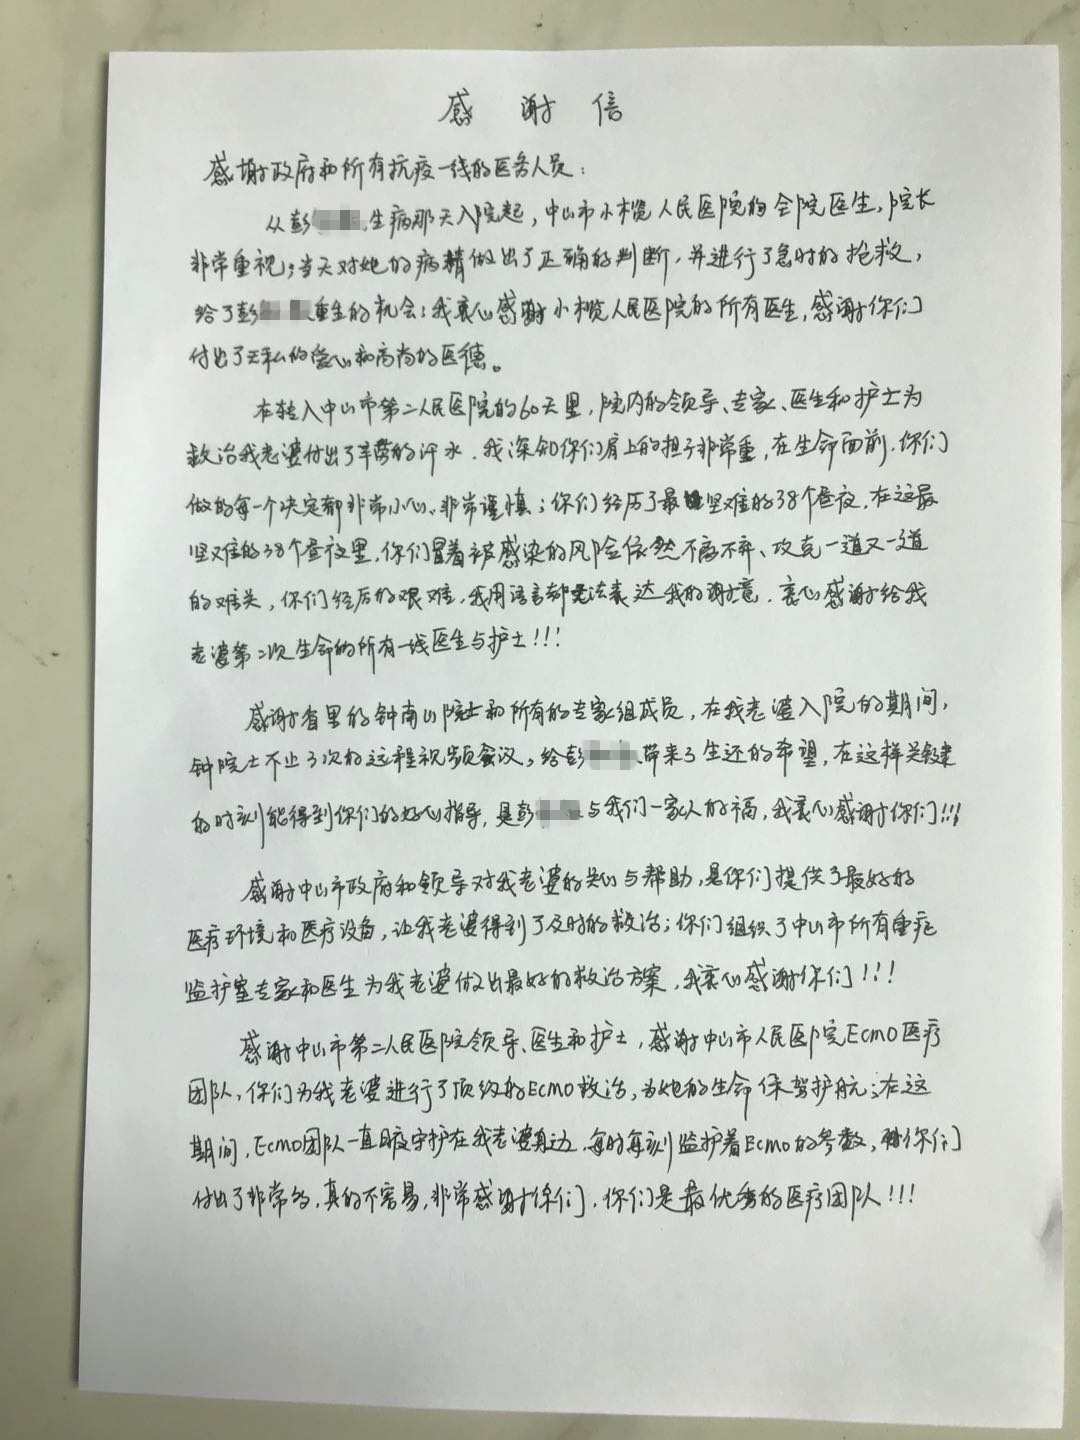 感谢信
感谢政府和所有抗疫一线的医务人员：
从彭 生病那天入院起，中山市小榄人民医院的全院医生，院长
非常重视；当天对她的病精做出了正确的判断，并进行了急时的抢救，
给了彭 重生的机会；我衷心感谢小榄人民医院的所有医生，感谢你们
付出了无私的爱心和高尚的医德。
在转入中山市第二人民医院的60天里，院内的领导、专家、医生和护士为
救治我老婆付出了辛劳的汗水．我深知你们肩上的担子非常重，在生命面前．你们
做的每一个决定都非常小心、非常谨慎；你们经历了最坚难的38个昼夜．在这最
坚难的38个昼夜里，你们冒着被感染的风险依然不离不弃、攻克一道又一道
的难关，你们经历的艰难，我用语言都无法表达我的谢意．衷心感谢给我
老婆第二次生命的所有一线医生与护士!!!
感谢省里的钟南山院士和所有的专家组成员，在我老婆入院的期间，
钟院士不止3次的远程视频会议，给彭 带来了生还的希望，在这样关键
的时刻能得到你们的好心指导，是彭 与我们一家人的福，我衷心感谢你们!!!
感谢中山市政府和领导对我老婆的关心与帮助，是你们提供了最好的
医疗环境和医疗设备，让我老婆得到了及时的救治；你们组织了中山市所有重症
监护室专家和医生为我老婆做出最好的救治方案，我衷心感谢你们!!!
感谢中山市第二人民医院领导、医生和护士，感谢中山市人民医院ECMO医疗
团队，你们为我老婆进行了顶级的ECMO救治，为她的生命保驾护航；在这
期间，ECMO团队一直日夜守护在我老婆身边．每时每刻监护着ECMO的参数，你们
付出了非常多，真的不容易，非常感谢你们．你们是最优秀的医疗团队!!!